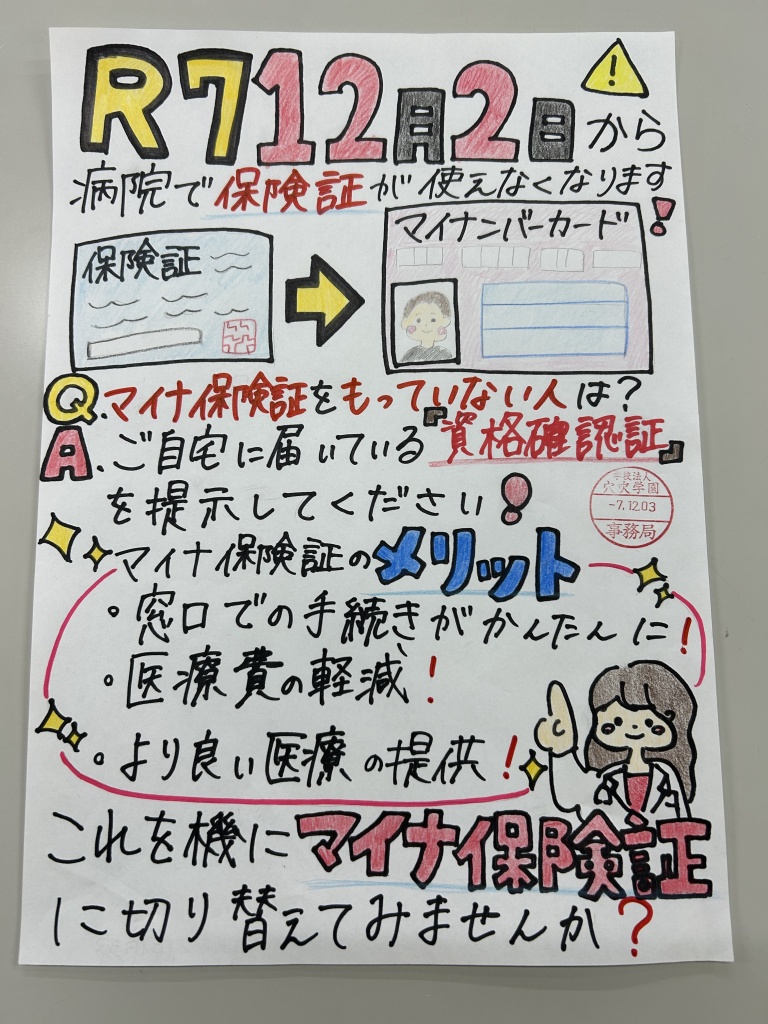 R7 12月2日から
病院で保険証が使えなくなります!
保険証
マイナンバーカード
Q.マイナ保険証をもっていない人は?
A.ご自宅に届いている『資格確認証』
を提示してください!
学校法人
穴吹学園
-7.12.03
事務局
マイナ保険証のメリット
・窓口での手続きがかんたんに!
・医療費の軽減!
・より良い医療の提供!
これを機にマイナ保険証
に切り替えてみませんか?